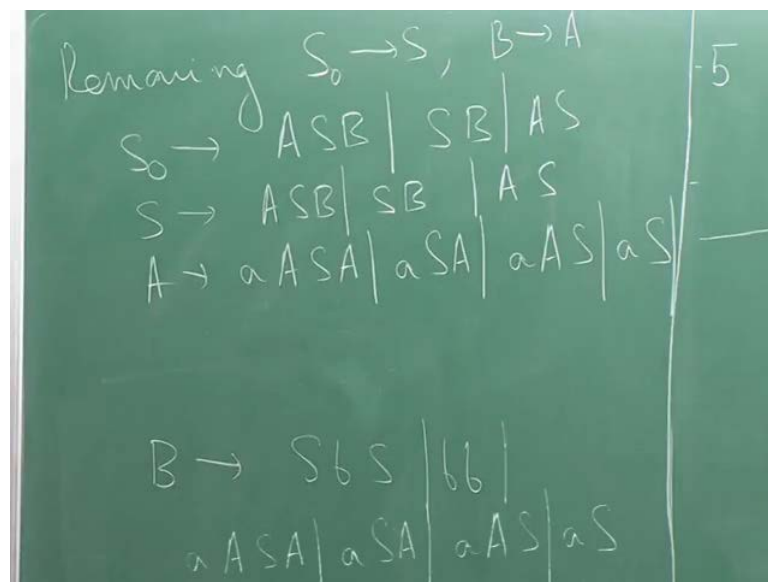 Removing S₀ → S, B → A
S₀ → ASB | SB | AS
S → ASB | SB | AS
A → aASA | aSA | aAS | aS |
B → SbS | bb |
aASA | aSA | aAS | aS
5